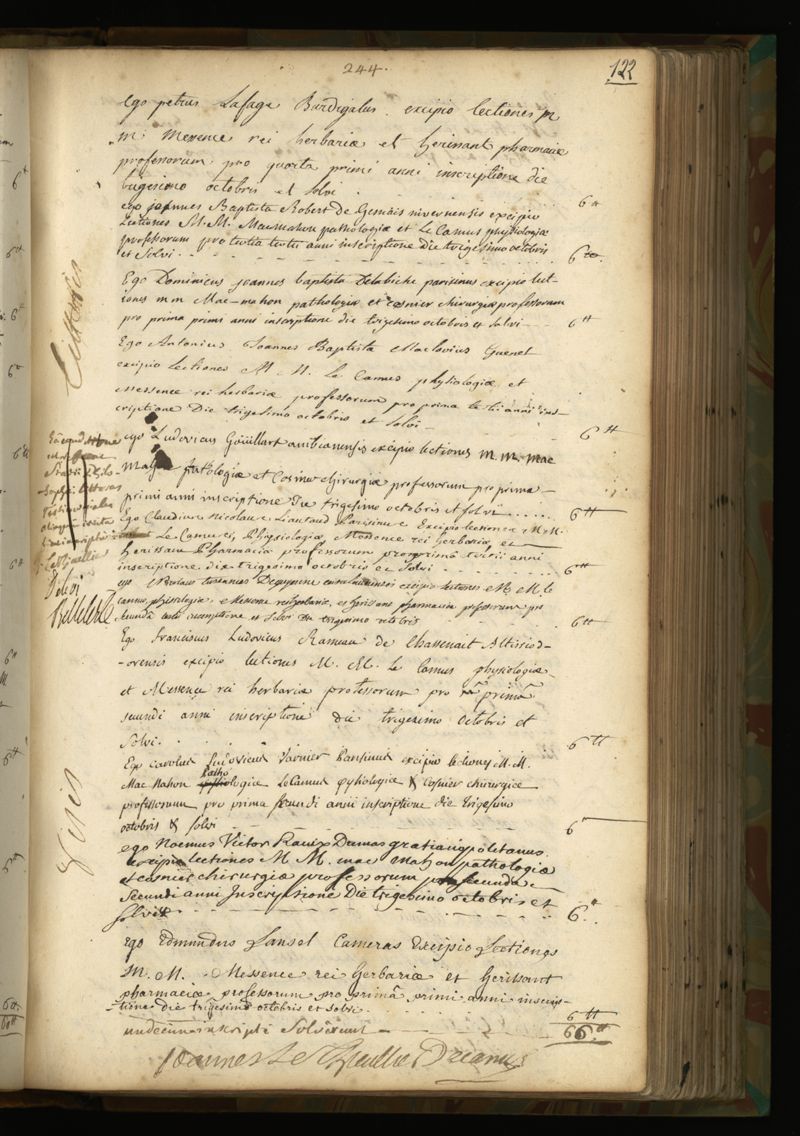 244.
122
Ego petrus Lafage Burdigalus excipio lectiones M
M. Messence rei herbariæ et herissant pharmaciæ
professorum pro quarta primi anni inscriptione die
trigesimo octobris et solvi
6 tt
ego joannes Baptista Robert de Gensais nivernensis excipio
Lectiones M. M. Macmahon pathologiæ et Le Camus physiologiæ
professorum pro tertia tertii anni inscriptione die trigesimo octobris
et Solvi
6 tt
Ego Dominicus joannes baptista Delabiche parisinus excipio lect-
iones m m Mac-mahon pathologiæ et cosnier chirurgiæ professorum
pro prima primi anni inscriptione die trigesimo octobris et solvi
6 tt
Ego Antonius Joannes Baptista Maclovius Guenet
excipio Lectiones M. M. le Camus physiologiæ et
Messence rei herbariæ professorum pro prima anni ins-
criptione Die trigesimo octobris et solvi
6 tt
ego Ludovicus Goüillart ambianensis excipio lectiones m. m. mac
Mahon Pathologiæ et Cosnier chirurgiæ professorum pro prima
primi anni inscriptione Die trigesimo octobris et solvi
6 tt
Ego Claudius Nicolaus Liautaud Parisinus Excipio lectiones M. M.
Le Camus, Physiologiæ, Messence rei herbariæ, et
herissan Pharmaciæ professorum pro prima tertii anni
inscriptione die trigesimo octobris et Solvi
6 tt
ego Nicolaus excipio lectiones M. M. le
camus physiologiæ, Messence rei herbariæ, et herissant pharmaciæ professorum pro
secunda inscriptione et Solvi die trigesimo octobris
6 tt
Ego Franciscus Ludovicus Rameau de Chassenait Altissiod-
-orensis excipio lectiones M. M. le Camus physiologiæ
et Messence rei herbariæ professorum pro primâ
secundi anni inscriptione die trigesimo octobris et
Solvi
6 tt
Ego carolus Ludovicus Varnier Parisinus excipio lectiones M. M.
Mac Mahon Pathologiæ LeCamus physiologiæ & Cosnier chirurgiæ
professorum pro prima secundi anni inscriptione die trigesimo
octobris & solvi
6
ego Noemus Victor Raux Dumas gratianopolitanus
excipio lectiones M M. mac mahon pathologiæ
et cosnier chirurgiæ professorum pro secunda
secundi anni Inscriptione Die trigesimo octobris et
solvi
6 tt
Ego Edmundus Lansel Cameras Excipio Lectiones
M. M. Messence rei herbariæ et herissant
pharmaciæ professorum pro primâ primi anni inscrip-
-tione die trigesimo octobris et solvi
6 tt
undecim inscripti Solverunt
66 tt
Joannes Le Thieullier Decanus